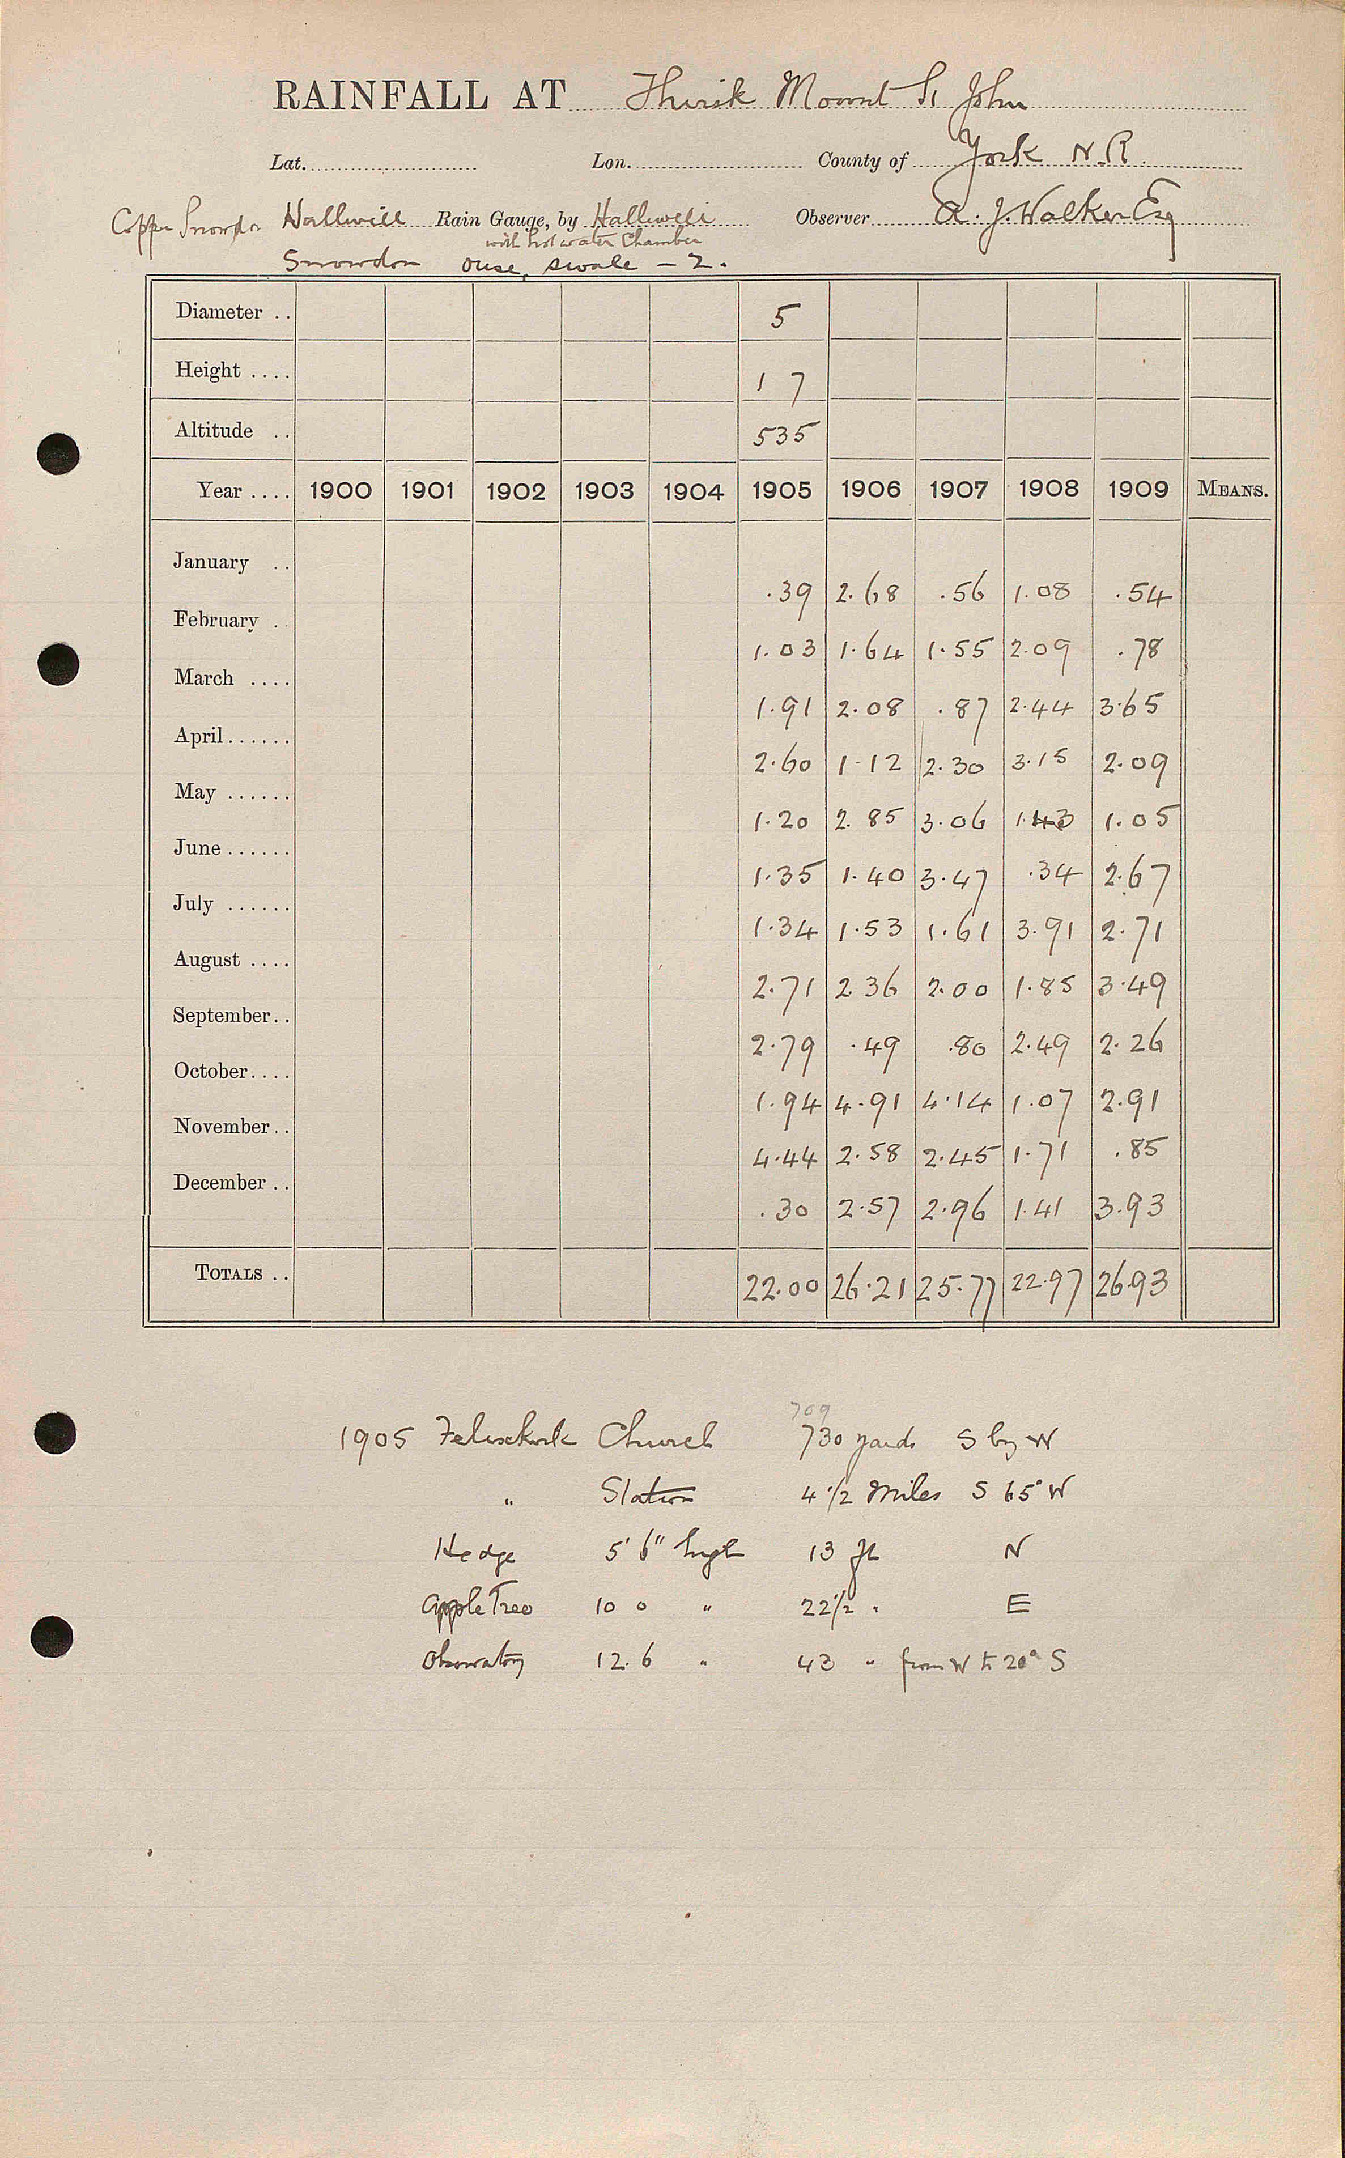 RAINFALL AT Thirsk Mount St John
Lat. Lon. County of York N.R.
Copper Snowdon Halliwell Rain Gauge, by Halliwell Observer A. J. Walker Esq
with hot water Chamber
Snowdon Ouse, Swale - 2.
Diameter .. 5
Height .... 1 7
Altitude .. 535
Year .... 1900 1901 1902 1903 1904 1905 1906 1907 1908 1909 MEANS.
January .. .39 2.68 .56 1.08 .54
February . 1.03 1.64 1.55 2.09 .78
March .... 1.91 2.08 .87 2.44 3.65
April...... 2.60 1.12 2.30 3.15 2.09
May ...... 1.20 2.85 3.06 1.43 1.05
June ...... 1.35 1.40 3.47 .34 2.67
July ...... 1.34 1.53 1.61 3.91 2.71
August .... 2.71 2.36 2.00 1.85 3.49
September.. 2.79 .49 .80 2.49 2.26
October.... 1.94 4.91 4.14 1.07 2.91
November.. 4.44 2.58 2.45 1.71 .85
December .. .30 2.57 2.96 1.41 3.93
TOTALS .. 22.00 26.21 25.77 22.97 26.93
709
1905 Feliskirk Church 730 yards S by W
" Station 4 1/2 Miles S 65° W
Hedge 5' 6" high 13 ft N
Apple Tree 10 0 " 22 1/2 " E
Observatory 12.6 " 43 " from W to 20° S